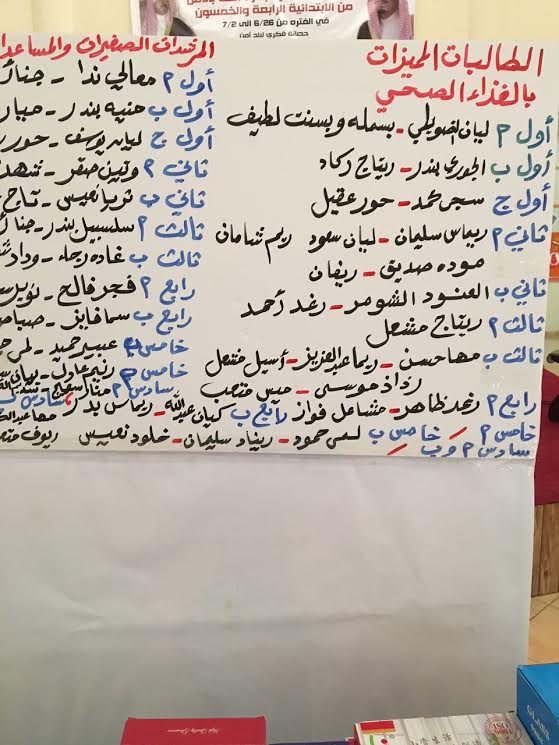 من الابتدائية الرابعة والخمسون
في الفترة من 6/26 الى 7/2
حصانة فكري لبلد آمن
الطالبات المميزات
بالغذاء الصحي
أول م ليان الضويلي - بسمله وبسنت لطيف
أول ب الجوري بندر - ريتاج ركاد
أول ج سجى محمد - حور عقيل
ثاني م ريماس سليمان - ليان سعود ريم شامان
موده صديق - ريفان
ثاني ب العنود الشومر - رغد أحمد
ثالث م ريتاج مشعل
ثالث ب مها حسن - ريما عبدالعزيز - أسيل مشعل
رذاذ موسى - ميس متعب
رابع م رغد ظاهر - مشاعل فواز رابع ب كيان عبدالله - ريماس بدر
خامس م خامس ب لمى حمود - ريناد سليمان - خلود نعيس
سادس م و ب
المرشدات الصغيرات والمساعدا
أول م معالي ندا - جنا
أول ب هنيه بندر -
أول ج ليان يوسف - حور
ثاني م وتين صقر - شهد
ثاني ب ثريا نعيس - تاج
ثالث م سلسبيل بندر - جنا
ثالث ب غاده رجاء - وداد
رابع م فجر فالح -
رابع ب سما فايز -
خامس م عبير حميد - لمى
خامس ب
سادس م
سادس ب
ISO
9001